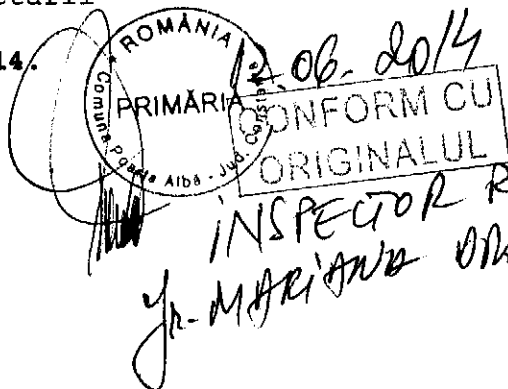 14.
ROMÂNIA
PRIMĂRIA
Comuna Poarta Albă - Jud.
06. 2014
CONFORM CU
ORIGINALUL
INSPECTOR R
Jr. MARIANA